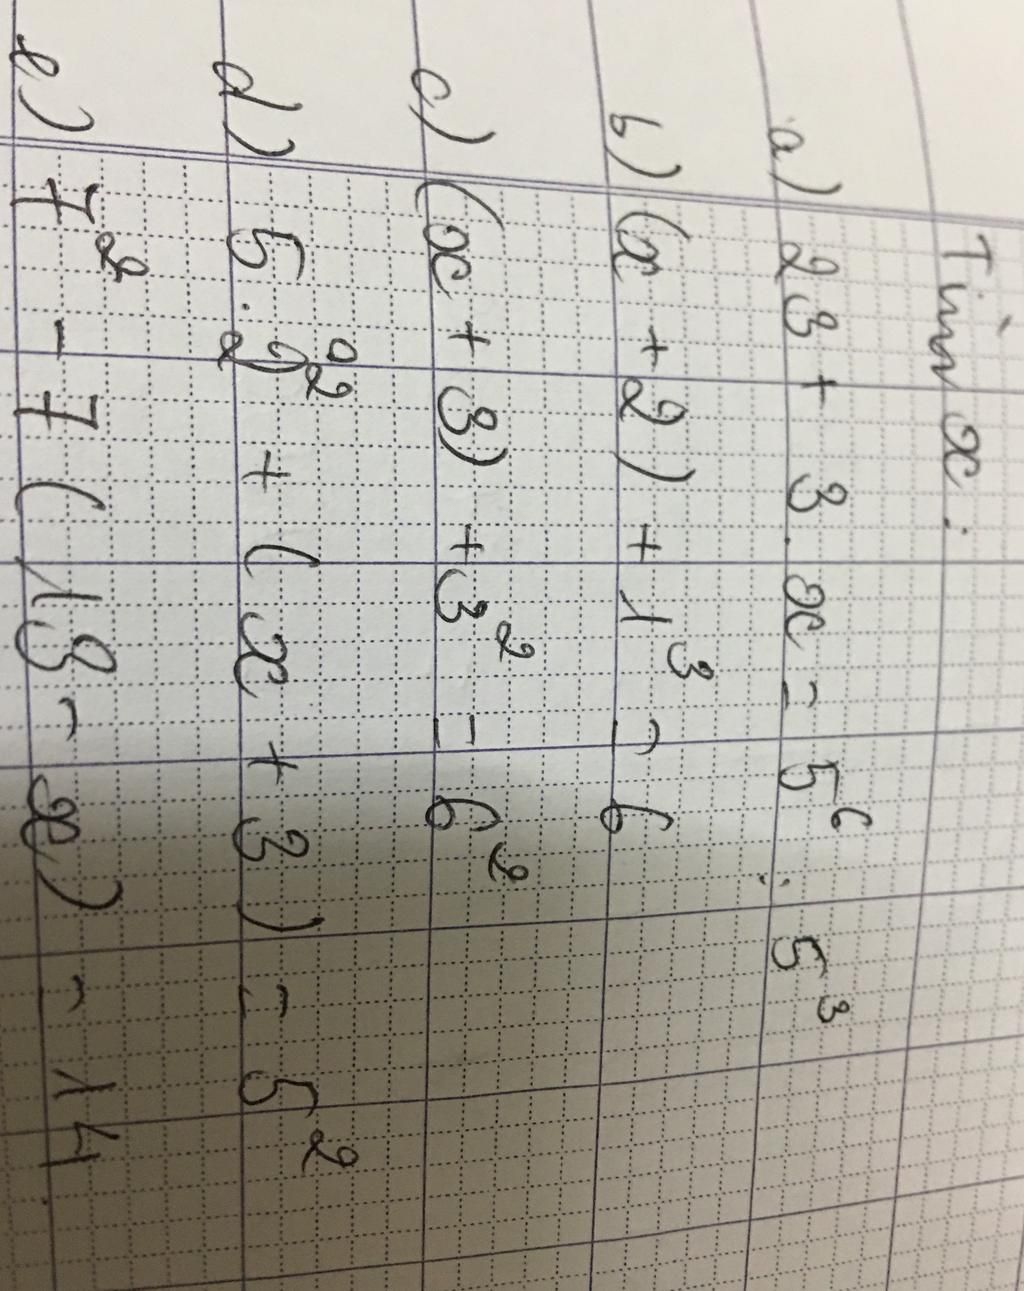 Tìm x :
a) 23 + 3.x = 5⁶ : 5³
b) (x + 2) + 1³ = 6
c) (x + 3) + 3² = 6²
d) 5.2² + (x + 3) = 5²
e) 7² - 7 (13 - x) = 14